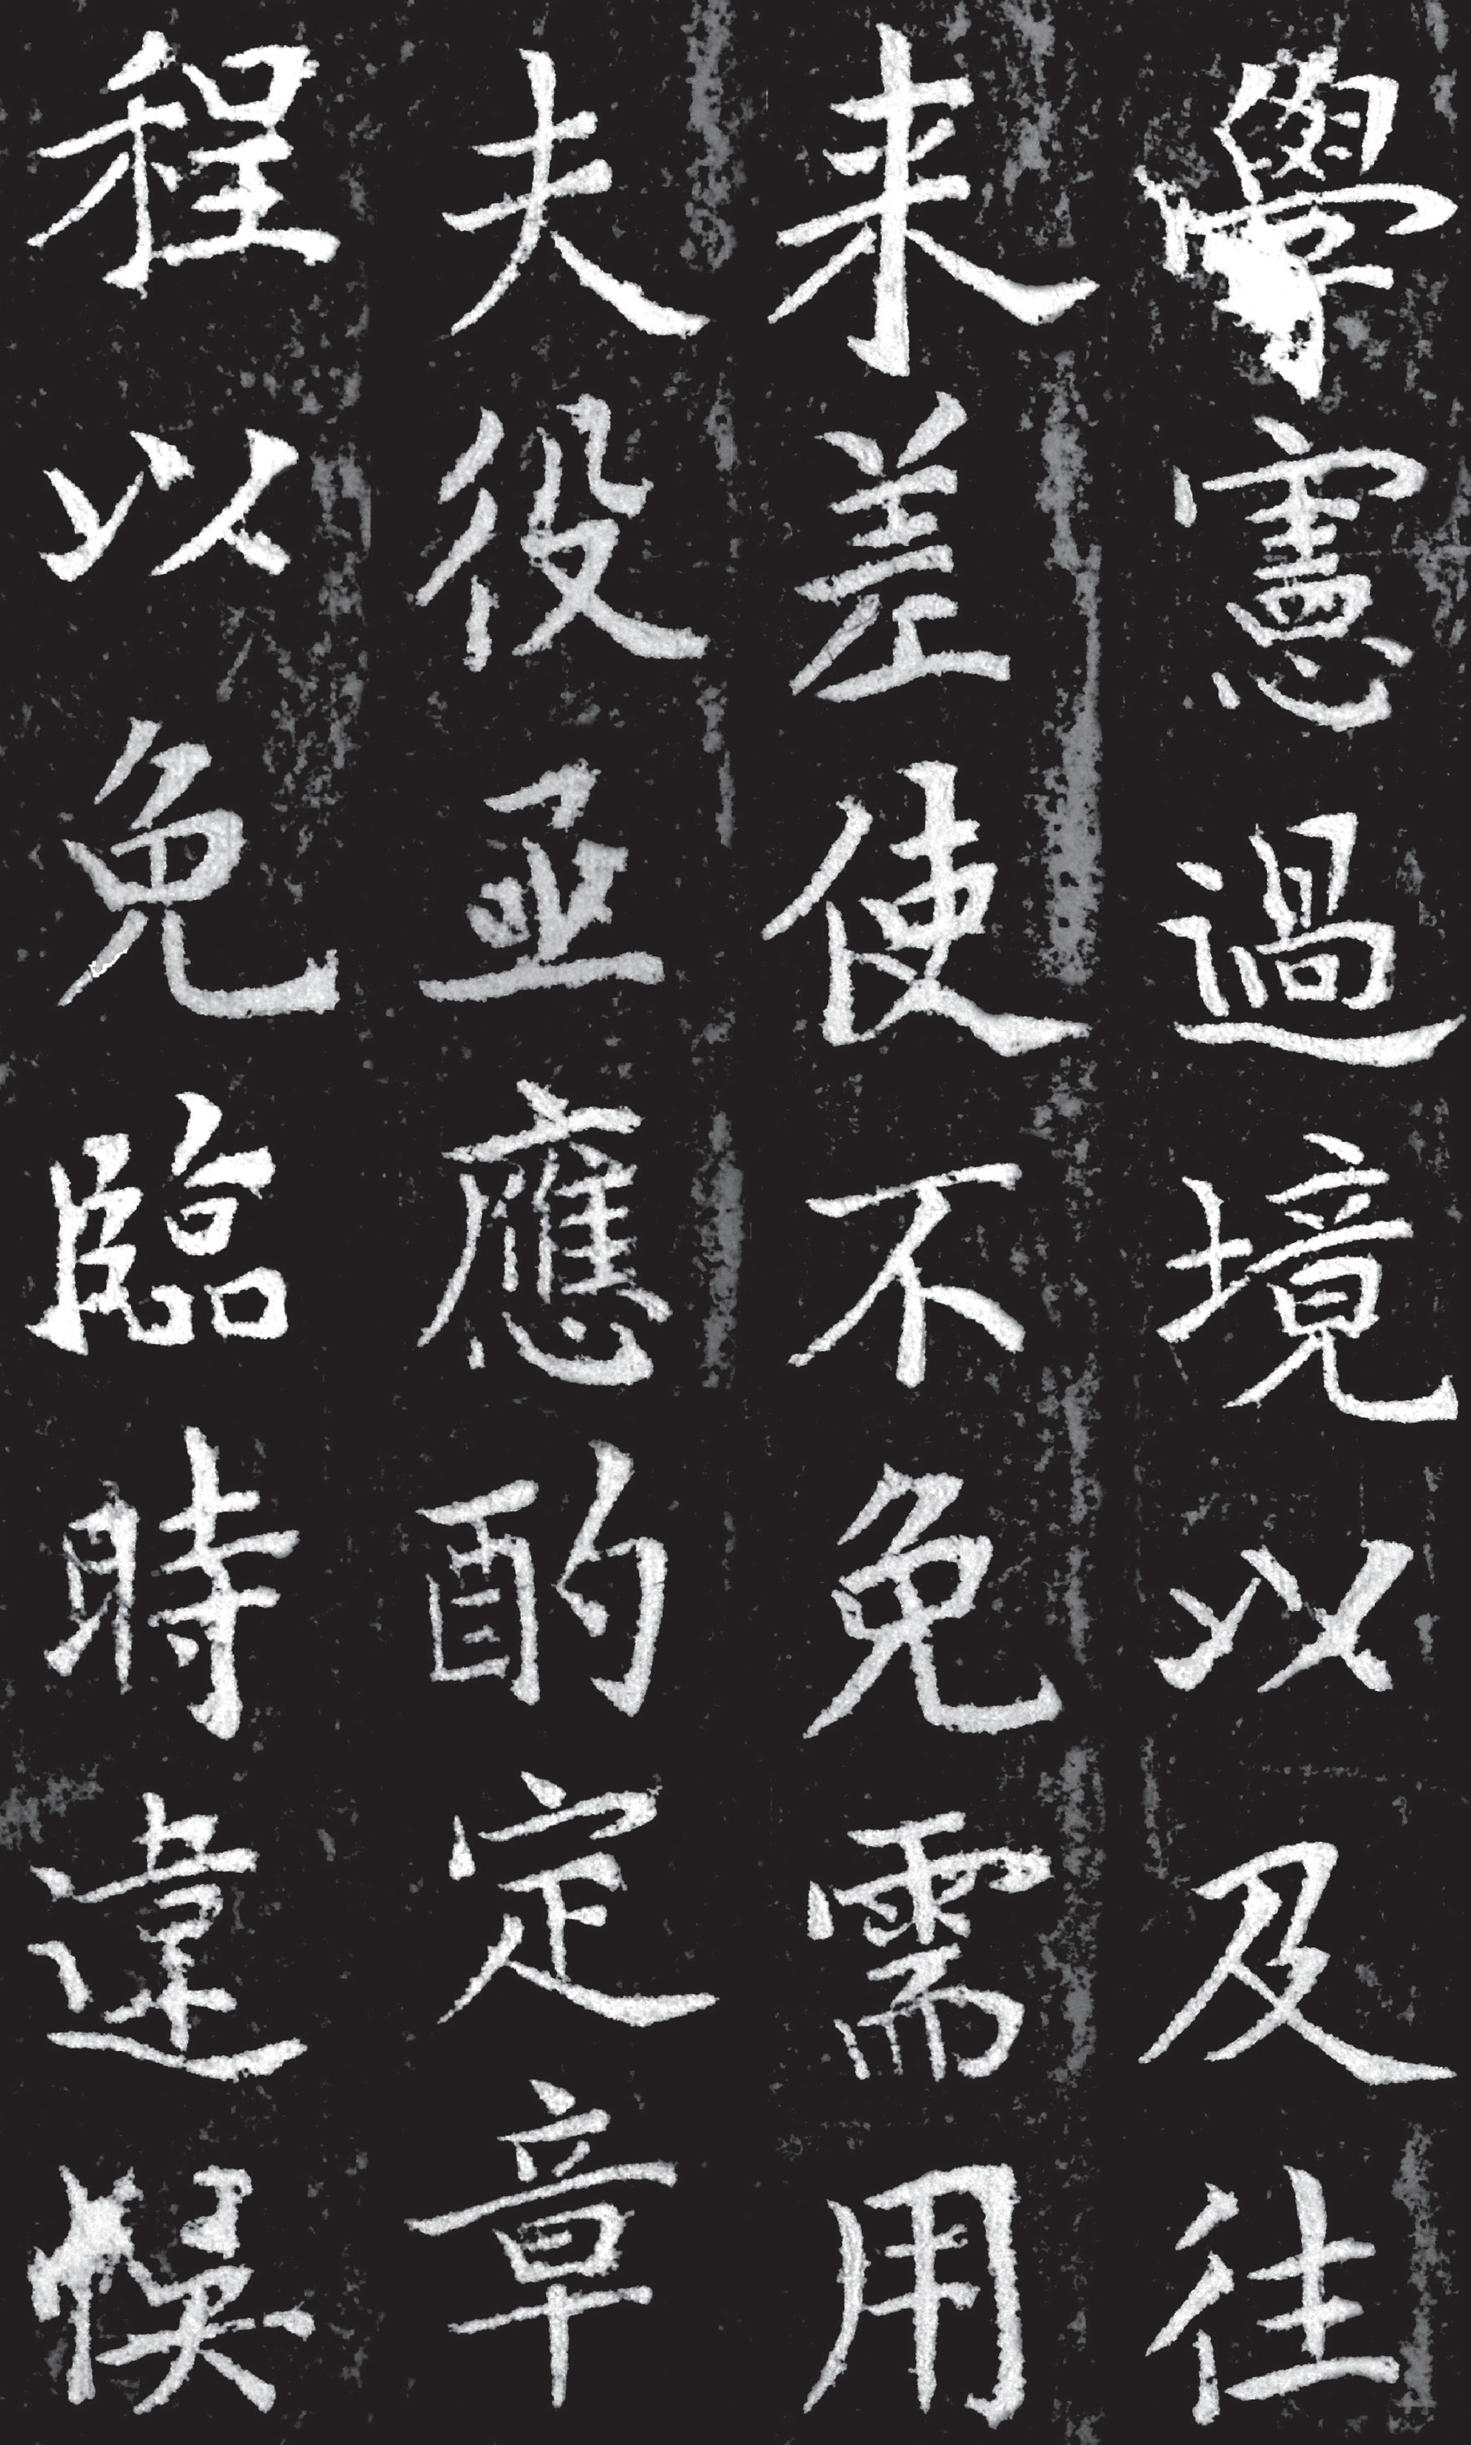 學憲過境以及往
来差使不免需用
夫役亟應酌定章
程以免臨時違悮